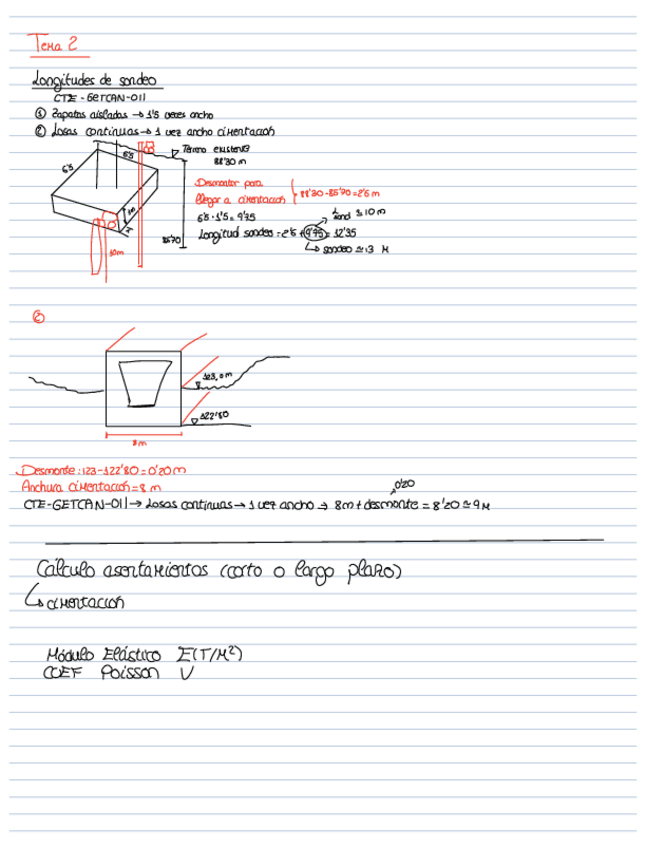 Tema 2
Longitudes de sondeo
CTE - GETCAN-011
① Zapatas aisladas → 1'5 veces ancho
② Losas continuas → 1 vez ancho cimentación
6'5
6'5
Terreno existente
88'30 m
Desmontar para
llegar a cimentación
88'30-85'70=2'6 m
6'5 · 1'5 = 9'75
Long ≃ 10 m
Longitud sondeo = 2'6 + 9'75 = 12'35
↳ sondeo ≃ 13 M
85'70
10m
②
123,0m
122'80
8m
Desmonte: 123-122'80=0'20m
Anchura cimentación = 8 m
0'20
CTE-GETCAN-011 → Losas continuas → 1 vez ancho → 8m + desmonte = 8'20 ≃ 9M
Cálculo asentamientos (corto o largo plazo)
↳ cimentación
Módulo Elástico E(T/M²)
COEF Poisson V